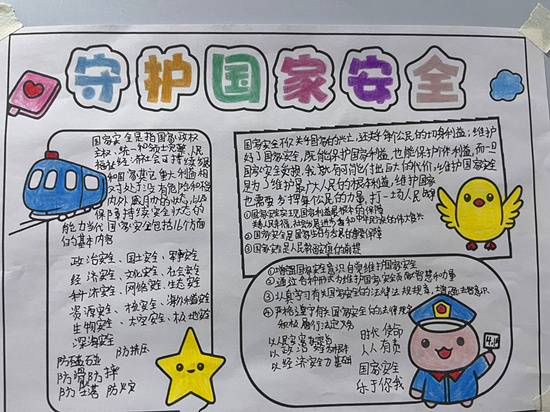 守护国家安全
国家安全是指国家政权
主权、统一和领土完整、人民
福祉、经济社会可持续发
和国家其它重大利益相
对处于没有危险和不
内外威胁的状态,以及
保障持续安全状态的
能力当代国家安全包括16个方面
的基本内容
政治安全、国土安全、军事安全
经济安全、文化安全、社会安全
科技安全、网络安全、生态安全
资源安全、核安全、海外利益安全
生物安全、太空安全、极地安全
深海安全
防磕碰 防挤压
防滑防摔
防坠落 防火灾
国家安全不仅关乎国家的兴亡,还关乎每个公民的切身利益;维护
好了国家安全,既能保护国家利益,也能保护个体利益,而一旦
国家安全受损,我们就有可能付出巨大的代价,维护国家安全
是为了维护最广大人民的根本利益,维护国家
也需要为捍卫每个人的力量,打一场人民战
①国家安全实现国家利益最根本的保障
②国家安全是国家生存与发展的重要保障
③国家安全是人民幸福安康的前提
①增强国家安全意识自觉维护国家安全
②通过各种形式为维护国家安全贡献智慧和力量
③认真学习有关国家安全的法律法规提高,增强法律意识
④严格遵守有关国家安全的法律规定
和积极履行法定义务
以人民安全为宗旨
以政治安全为根本
以经济安全为基础
时代使命
人人有责
国家安全
系于你我
4.15